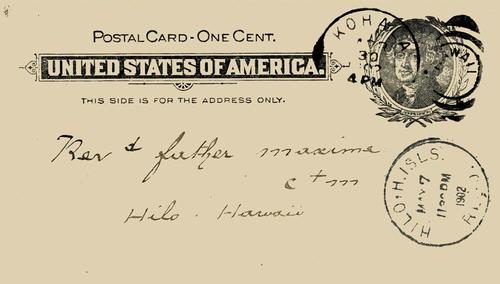 POSTAL CARD - ONE CENT.
UNITED STATES OF AMERICA.
THIS SIDE IS FOR THE ADDRESS ONLY.
KOHALA
30
4 PM
HAWAII
Revd father maxime
c+m
Hilo. Hawaii
HILO, H. ISLS.
MAY 7
1902